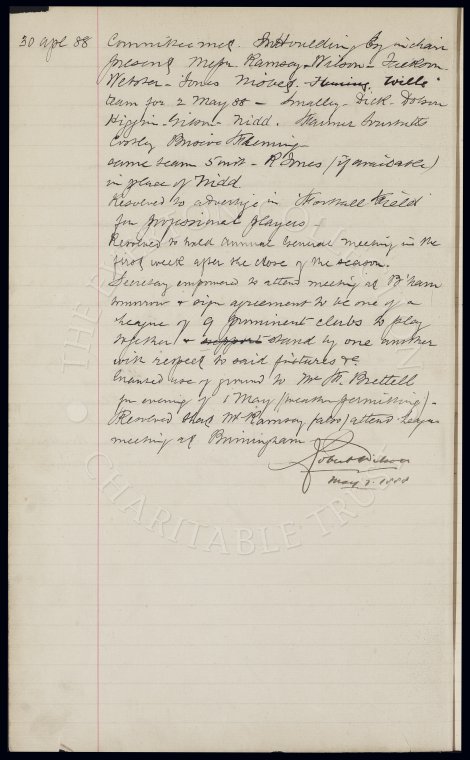 30 Apl 88 Committee met. Jn Houlding Esq in chair
present Messrs Ramsay - Wilson - Jackson
Webster - Jones
team for 2 May 88 - Smalley - Dick - Dobson
Higgin - Gibson - Nidd. Farmer
Costley Briscoe Fleming
same team 5 inst - R Jones (if available)
in place of Nidd
Resolved to advertise in Football Field
for professional players
Resolved to hold Annual General Meeting in the
first week after the close of the season.
Secretary empowered to attend meeting at B'ham
tomorrow & sign agreement to be one of a
League of 9 prominent clubs to play
together & support stand by one another
with respect to said fixtures &c
Granted use of ground to Mr Brettell
for evening of 1 May (weather permitting) -
Resolved that Mr Ramsay (also) attend League
meeting at Birmingham
Robert Wilson
May 1888
THE EVERTON
CHARITABLE TRUST